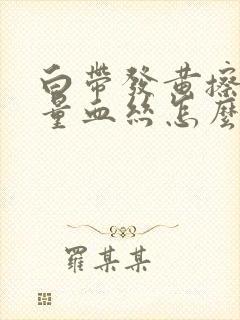 白帶發黃擦
量血絲怎麼
羅某某